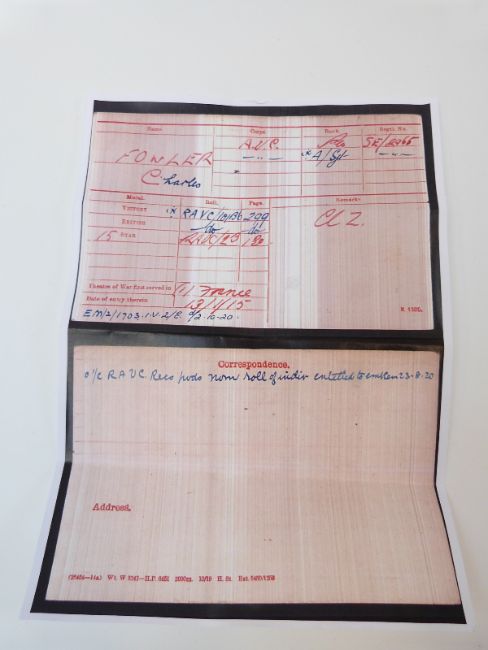 Name. Corps. Rank. Regtl. No.
FOWLER A.V.C. Pte SE/2965
Charles —"— x A/Sgt —"—
Medal. Roll. Page. Remarks
VICTORY x RAVC/101B6 299 Cl Z.
BRITISH do do
15 STAR RAVC/
Theatre of War first served in (1) France
Date of entry therein 13/1/15 K 1380.
EM/2/1703. I.V. 2/E 2.10.20.
Correspondence.
o/c RAVC Recs nom roll of indiv entitled to emblem 23.8.20
Address.
Wt. W 5047—H.P. 2000m. 10/19 H. St.